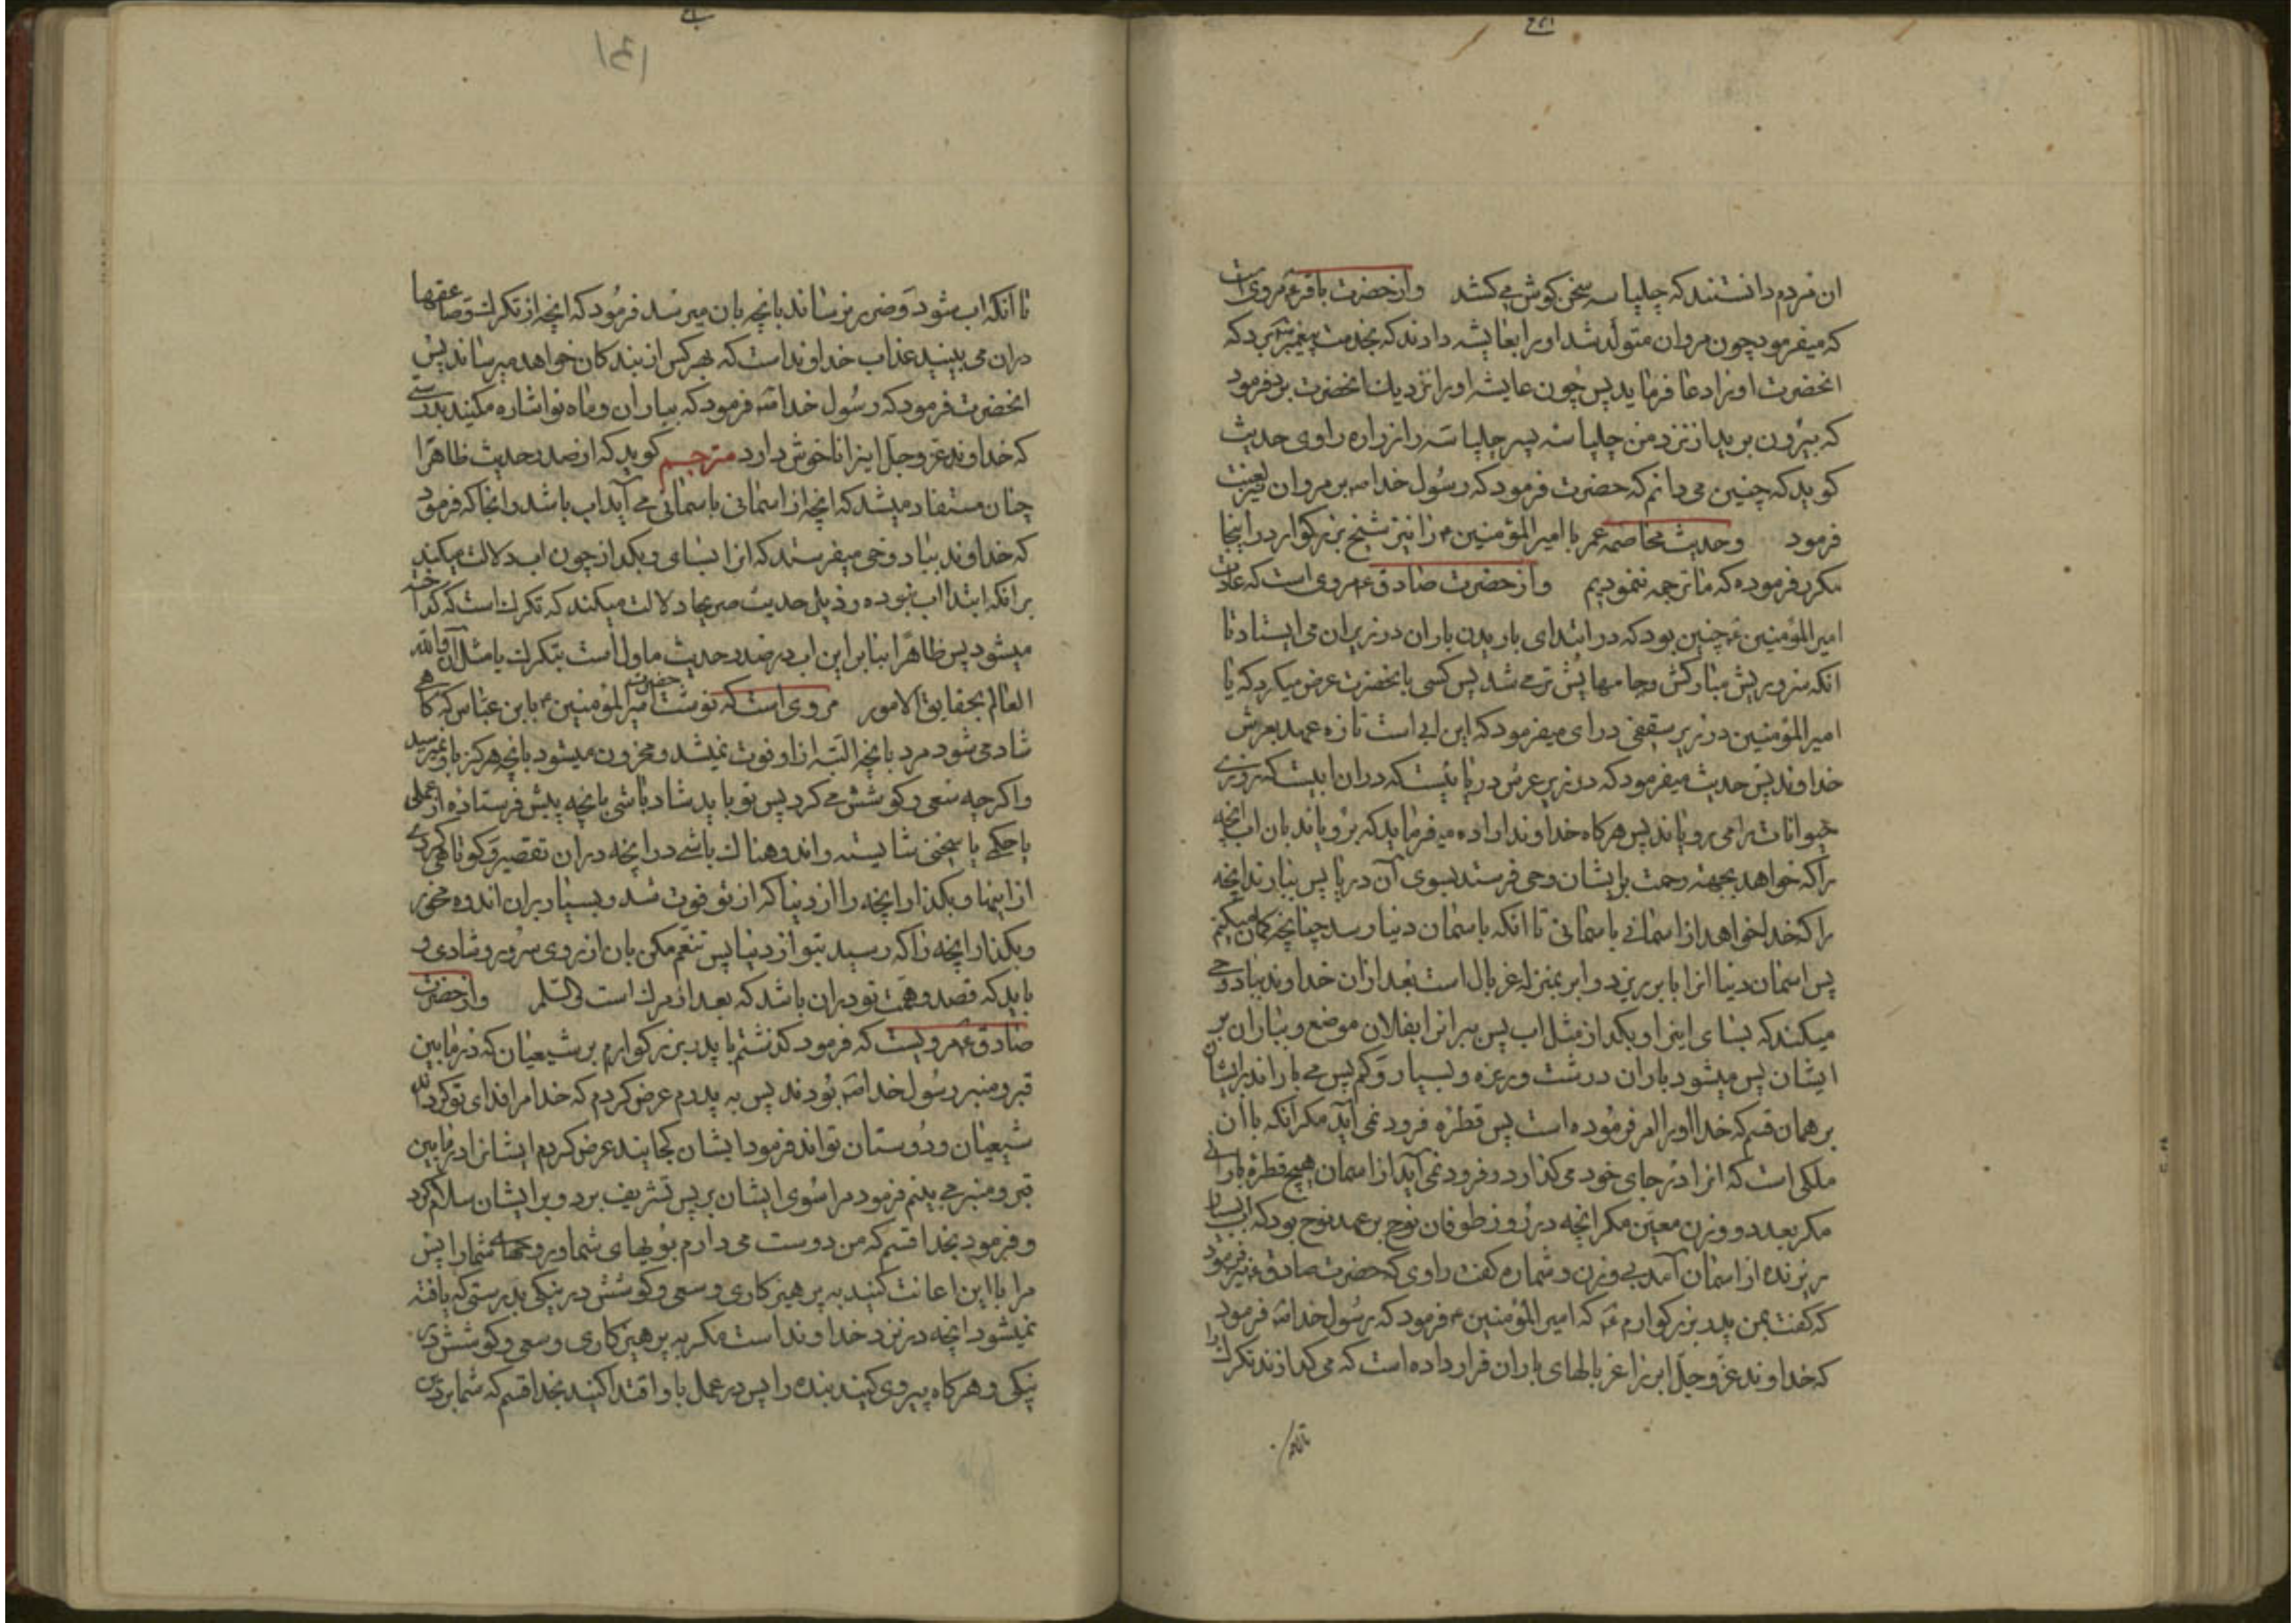 ان مردم دانستند که چلپاسه سخن کوش می کشد وازحضرت باقر۴ مرویست
که میفرمود چون مروان متولد شد او را بعایشه دادند که بخدمت پیغمبر ص برد که
انحضرت او را دعا فرماید پس چون عایشه او را نزدیک انحضرت برد فرمود
که بیرون برید از نزد من چلپاسه پسر چلپاسه را زراره راوی حدیث
کوید که چنین می دانم که حضرت فرمود که رسول خدا ص بر مروان نیز لعنت
فرمود وحدیث مخاصمه عمر با امیرالمؤمنین ۴ را نیز شیخ بزرکوار در اینجا
مکرر فرموده که ما ترجمه ننمودیم واز حضرت صادق ۴ مرویست که عادت
امیرالمؤمنین ۴ چنین بود که در ابتدای باریدن باران در زیر ان می ایستاد تا
انکه سر و ریش مبارکش و جامهایش تر می شد پس کسی بانحضرت عرض میکرد که یا
امیرالمؤمنین در زیر سقفی درای میفرمود که این ابی است تازه عهد بعرش
خداوند پس حدیث میفرمود که در زیر عرش دریائیست که دران ابیست که روزی
حیوانات را می رویاند پس هرکاه خداوند اراده میفرماید که برویاند بان اب انچه
را که خواهد بجهته رحمت بر ایشان وحی فرستد بسوی آن دریا پس ببارند انچه
را که خدا خواهد از اسمانی باسمانی تا انکه باسمان دنیا رسد چنانچه کمان میکنم
پس اسمان دنیا انرا بابر ریزد و ابر بمنزله غربال است بعد ازان خداوند بباد وحی
میکند که بسای اینرا و بکداز مثل اب پس ببر انرا بفلان موضع و بباران بر
ایشان پس میشود باران درشت و ریزه و بسیار و کم پس می باراند بر ایشان
بر همان قسم که خدا او را امر فرموده است پس قطره فرود نمی آید مکر انکه با ان
ملکی است که انرا در جای خود می کذارد و فرود نمی آید از اسمان هیچ قطره بارانی
مکر بعدد و وزن معین مکر انچه در روز طوفان نوح بر عهد نوح بود که اب بسیار
ریزنده از اسمان آمد بی وزن و شماره کفت راوی که حضرت صادق ۴ نیز فرمود
که کفت بمن پدر بزرکوارم ۴ که امیرالمؤمنین ۴ فرمود که رسول خدا ص فرمود
که خداوند عز و جل ابر را غربالهای باران قرار داده است که می کدازند تکرک را
تا انکه
۱۴۱
تا انکه اب شود و ضرر نرساند بانچه بان میرسد فرمود که انچه از تکرک و صاعقها
دران می بینید عذاب خداوند است که بهرکس از بندکان خواهد میرساند پس
انحضرت فرمود که رسول خدا ص فرمود که بباران و ماه نو اشاره مکنید بدرستی
که خداوند عز و جل اینرا ناخوش دارد مترجم کوید که از صدر حدیث ظاهرا
چنان مستفاد میشد که انچه از اسمانی باسمانی می آید اب باشد و انجا که فرمود
که خداوند بباد وحی میفرستد که انرا بسای و بکداز چون اب دلالت میکند
برانکه ابتدا اب نبوده و ذیل حدیث صریحا دلالت میکند که تکرک است که کداخته
میشود پس ظاهرا بنابراین اب در صدر حدیث ماول است بتکرک یا مثل آن والله
العالم بحقایق الامور مروی است که نوشت حضرت امیرالمؤمنین ۴ بابن عباس که کاهی
شاد می شود مرد بانچه البته ازاو فوت نمیشد و محزون میشود بانچه هرکز باو نمیرسید
واکرچه سعی و کوشش می کرد پس تو باید شاد باشی بانچه پیش فرستاده از عملی
یا حکمی یا سخنی شایسته و اندوهناک باشی در انچه دران تقصیر و کوتاهی کردی
از اینها و بکذار انچه را از دنیا که از تو فوت شد و بسیار بران اندوه مخور
و بکذار انچه را که رسید بتو از دنیا پس تنعم مکن بان از روی سرور و شادی و
باید که قصد و همت تو دران باشد که بعد از مرک است والسلم وازحضرت
صادق ۴ مرویست که فرمود کذشتم با پدر بزرکوارم بر شیعیان که در مابین
قبر و منبر رسول خدا ص بودند پس به پدرم عرض کردم که خدا مرا فدای تو کرداند
شیعیان و دوستان تواند فرمود ایشان کجایند عرض کردم ایشانرا در مابین
قبر و منبر می بینم فرمود مرا سوی ایشان بر پس تشریف برد و بر ایشان سلام کرد
و فرمود بخدا قسم که من دوست می دارم بویهای شما و روحهای شما را پس
مرا با این اعانت کنید به پرهیزکاری و سعی و کوشش در نیکی بدرستی که یافته
نمیشود انچه در نزد خداوند است مکر به پرهیزکاری و سعی و کوشش در
نیکی و هرکاه پیروی کنید بنده را پس در عمل باو اقتدا کنید بخدا قسم که شما بر دین